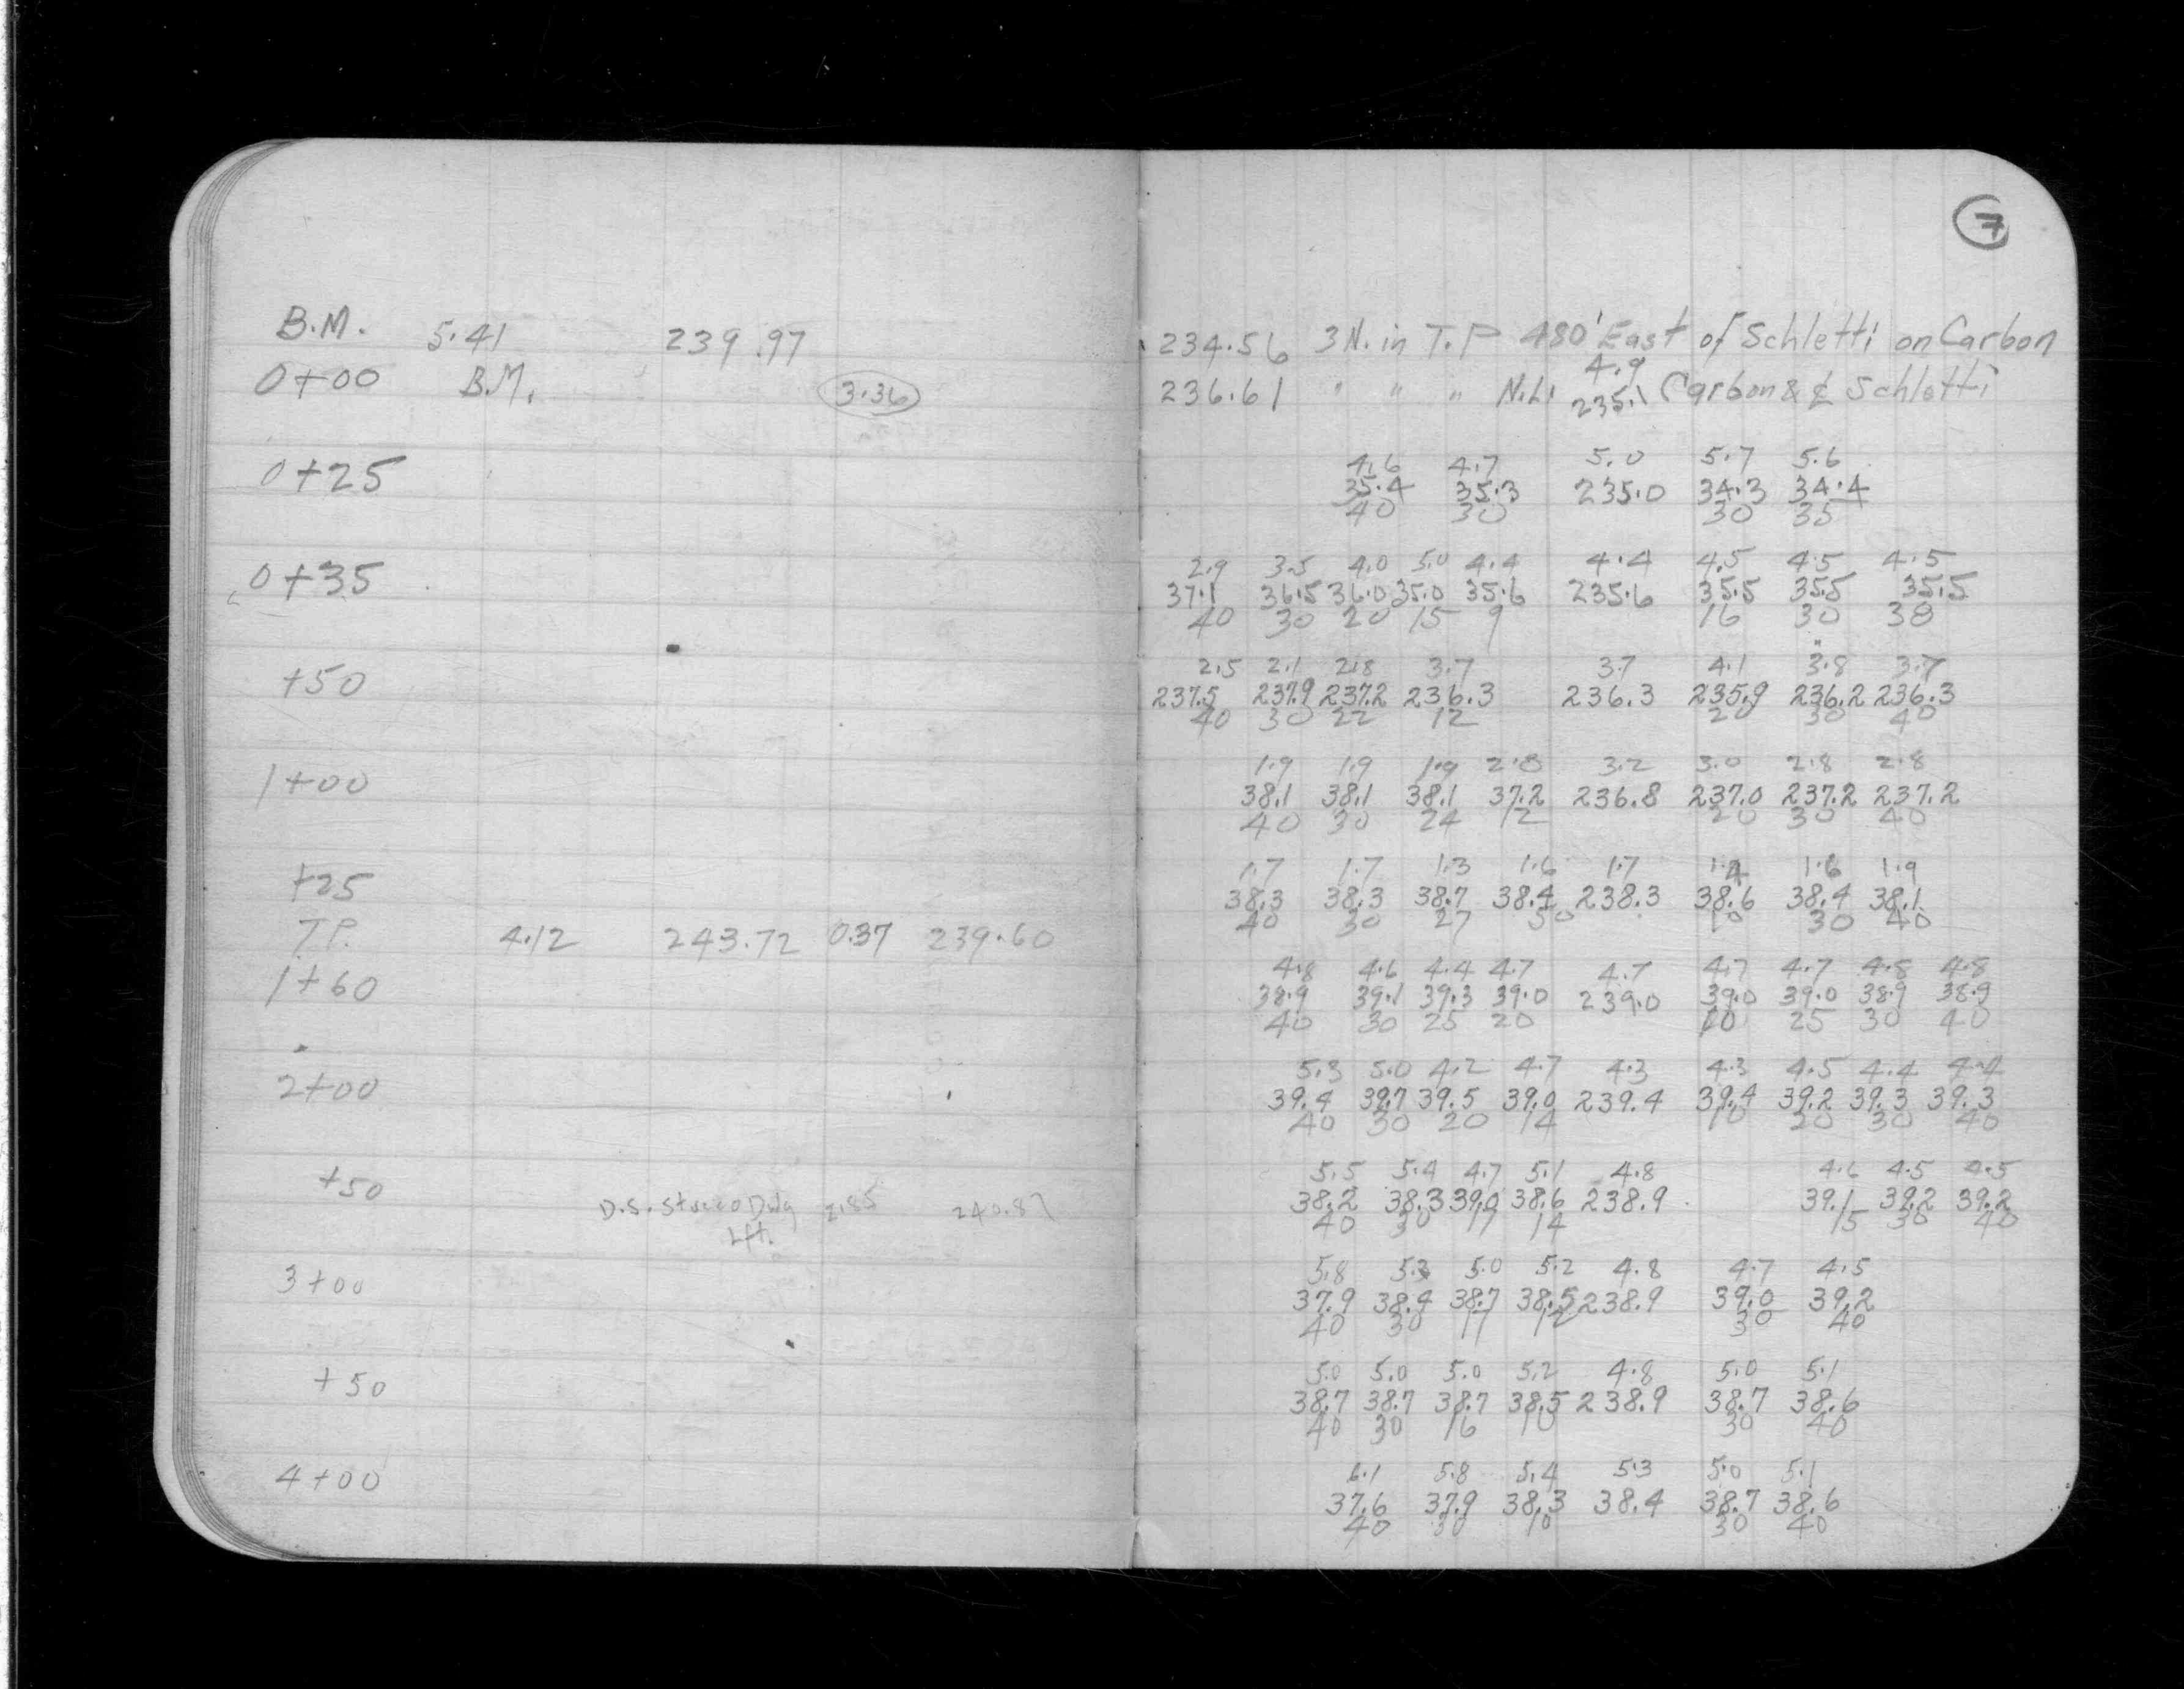 7
B.M. 5.41 239.97 234.56 3N. in T.P 480' East of Schletti on Carbon
4.9
0+00 B.M. 3.36 236.61 " " " N.L. 235.1 Carbon & ℄ Schletti
4.6 4.7 5.0 5.7 5.6
0+25 35.4 35.3 235.0 34.3 34.4
40 30 30 35
2.9 3.5 4.0 5.0 4.4 4.4 4.5 4.5 4.5
0+35 37.1 36.5 36.0 35.0 35.6 235.6 35.5 35.5 35.5
40 30 20 15 9 16 30 38
2.5 2.1 2.8 3.7 3.7 4.1 3.8 3.7
+50 237.5 237.9 237.2 236.3 236.3 235.9 236.2 236.3
40 30 22 12 20 30 40
1.9 1.9 1.9 2.8 3.2 3.0 2.8 2.8
1+00 38.1 38.1 38.1 37.2 236.8 237.0 237.2 237.2
40 30 24 12 20 30 40
1.7 1.7 1.3 1.6 1.7 1.4 1.6 1.9
+25 38.3 38.3 38.7 38.4 238.3 38.6 38.4 38.1
40 30 27 10 30 40
T.P. 4.12 243.72 0.37 239.60
4.8 4.6 4.4 4.7 4.7 4.7 4.7 4.8 4.8
1+60 38.9 39.1 39.3 39.0 239.0 39.0 39.0 38.9 38.9
40 30 25 20 10 25 30 40
5.3 5.0 4.2 4.7 4.3 4.3 4.5 4.4 4.4
2+00 39.4 39.7 39.5 39.0 239.4 39.4 39.2 39.3 39.3
40 30 20 14 10 20 30 40
5.5 5.4 4.7 5.1 4.8 4.6 4.5 4.5
+50 D.S. Stucco Dwg 2.85 240.87 38.2 38.3 39.0 38.6 238.9 39.1 39.2 39.2
Lft. 40 30 17 14 15 30 40
5.8 5.3 5.0 5.2 4.8 4.7 4.5
3+00 37.9 38.4 38.7 38.5 238.9 39.0 39.2
40 30 17 12 30 40
5.0 5.0 5.0 5.2 4.8 5.0 5.1
+50 38.7 38.7 38.7 38.5 238.9 38.7 38.6
40 30 16 10 30 40
6.1 5.8 5.4 5.3 5.0 5.1
4+00 37.6 37.9 38.3 38.4 38.7 38.6
40 30 10 30 40